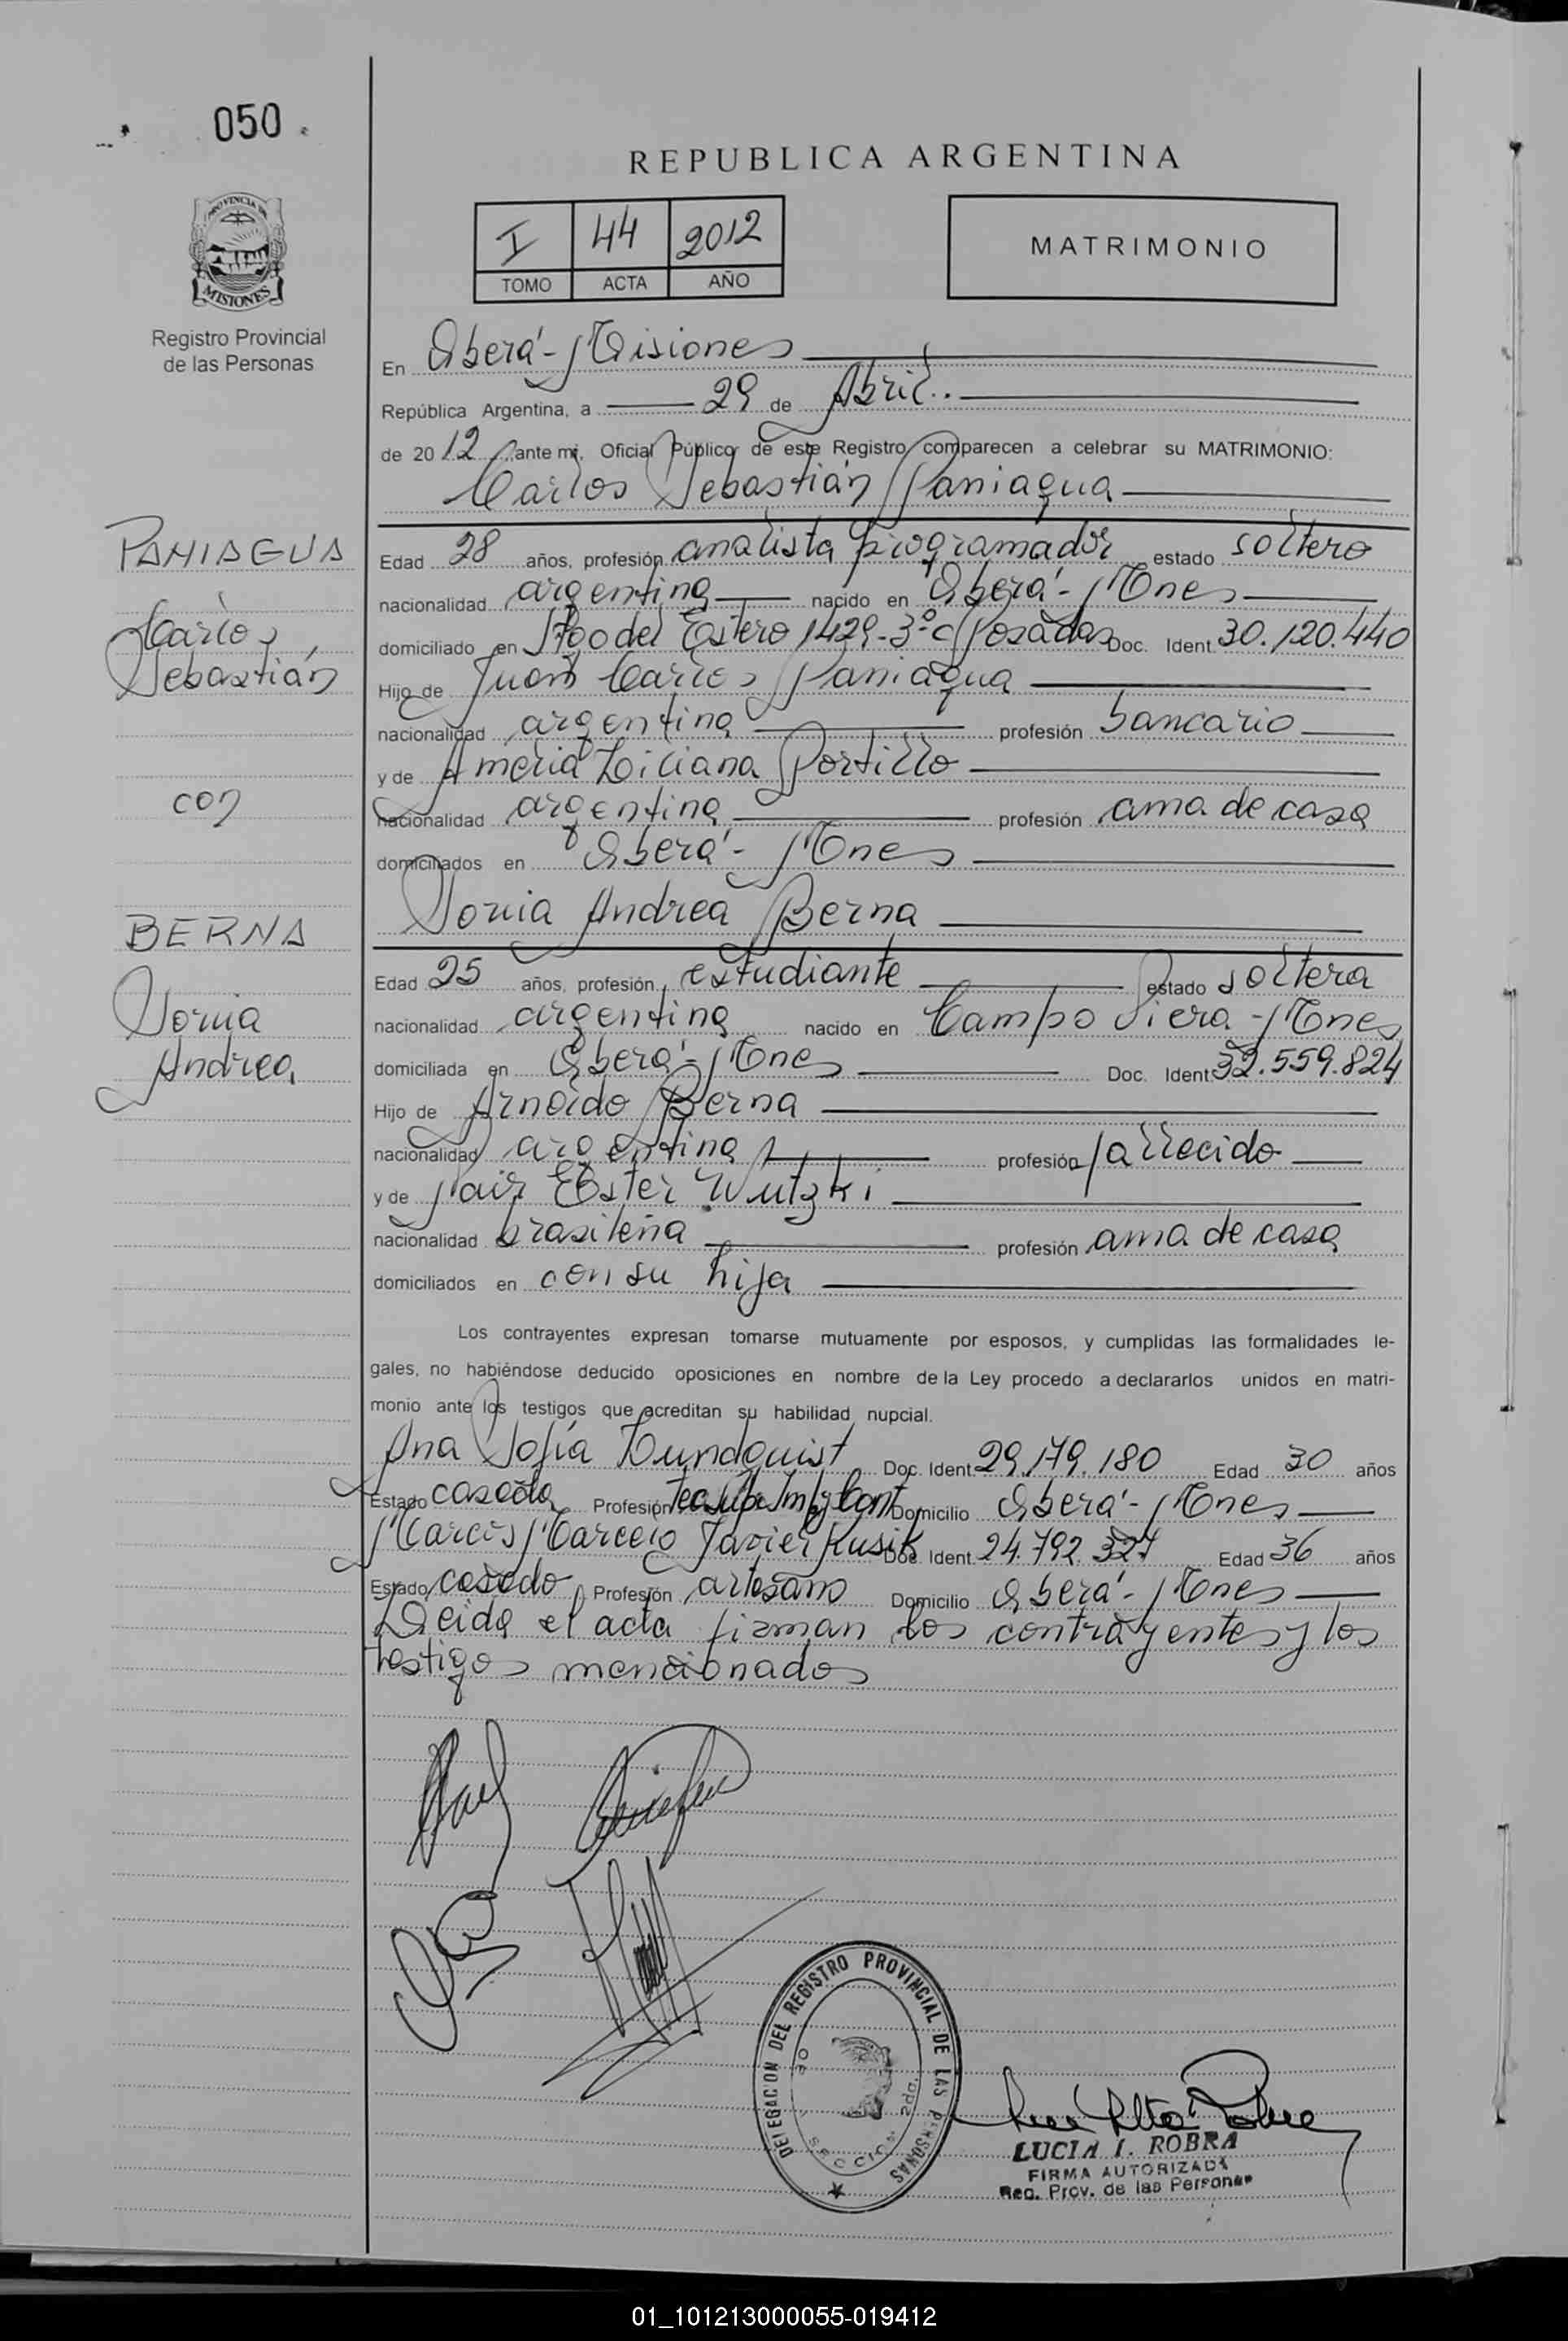 050
REPUBLICA ARGENTINA
I 44 2012
TOMO ACTA AÑO
MATRIMONIO
PROVINCIA DE
MISIONES
Registro Provincial
de las Personas
En Oberá - Misiones
República Argentina, a 29 de Abril..
de 2012 ante mí, Oficial Público de este Registro comparecen a celebrar su MATRIMONIO:
Carlos Sebastián Paniagua
PANIAGUA
Carlos
Sebastián
con
BERNA
Sonia
Andrea
Edad 28 años, profesión analista programador estado soltero
nacionalidad argentina nacido en Oberá - Mnes
domiciliado en Stgo del Estero 1429-3º C Posadas Doc. Ident. 30.120.440
Hijo de Juan Carlos Paniagua
nacionalidad argentina profesión bancario
y de Amelia Liliana Portillo
nacionalidad argentina profesión ama de casa
domiciliados en Oberá - Mnes
Sonia Andrea Berna
Edad 25 años, profesión estudiante estado soltera
nacionalidad argentina nacido en Campo Viera - Mnes
domiciliada en Oberá - Mnes Doc. Ident. 32.559.824
Hijo de Arnoldo Berna
nacionalidad argentina profesión fallecido
y de Nair Ester Wutzki
nacionalidad brasileña profesión ama de casa
domiciliados en con su hija
Los contrayentes expresan tomarse mutuamente por esposos, y cumplidas las formalidades le-
gales, no habiéndose deducido oposiciones en nombre de la Ley procedo a declararlos unidos en matri-
monio ante los testigos que acreditan su habilidad nupcial.
Ana Sofía Lundquist Doc. Ident. 29.179.180 Edad 30 años
Estado casada Profesión Domicilio Oberá - Mnes
Marcos Marcelo Javier Kusik Doc. Ident. 24.792.327 Edad 36 años
Estado casado Profesión artesano Domicilio Oberá - Mnes
Leída el acta firman los contrayentes y los
testigos mencionados
DELEGACION DEL REGISTRO PROVINCIAL DE LAS PERSONAS
SECCION 2da.
LUCIA I. ROBRA
FIRMA AUTORIZADA
Reg. Prov. de las Personas
01_101213000055-019412